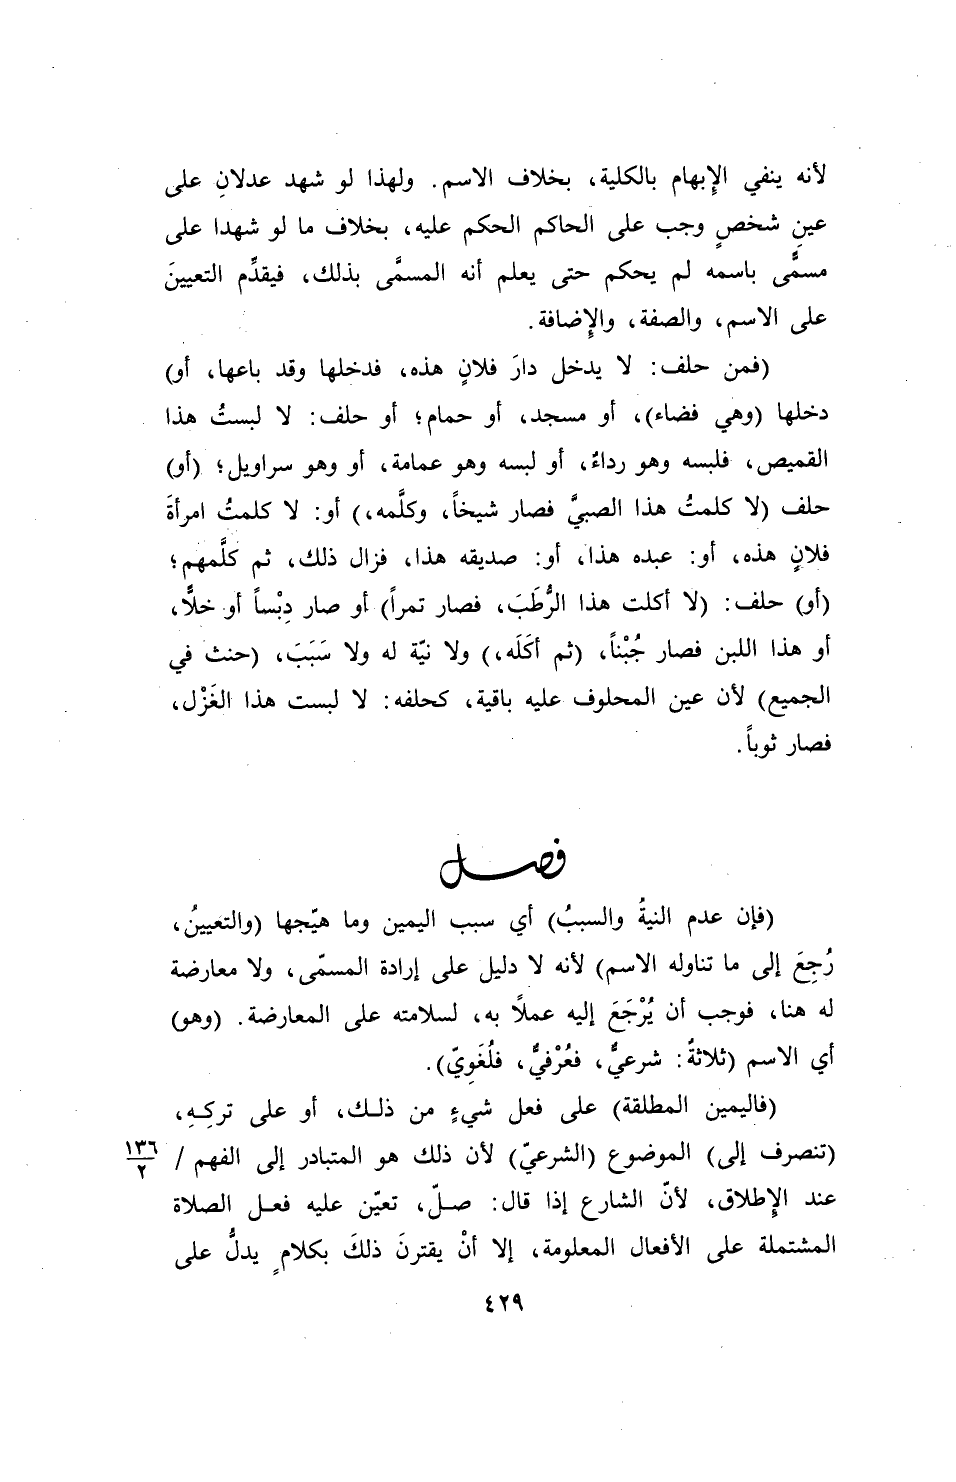 لأنه ينفي الإبهام بالكلية، بخلاف الاسم. ولهذا لو شهد عدلانِ على
عينِ شخصٍ وجب على الحاكم الحكم عليه، بخلاف ما لو شهدا على
مسمًّى باسمه لم يحكم حتى يعلم أنه المسمَّى بذلك، فيقدِّم التعيينَ
على الاسم، والصفة، والإضافة.
(فمن حلف: لا يدخل دارَ فلانٍ هذه، فدخلها وقد باعها، أو)
دخلها (وهي فضاء)، أو مسجد، أو حمام؛ أو حلف: لا لبستُ هذا
القميص، فلبسه وهو رداءٌ، أو لبسه وهو عمامة، أو وهو سراويل؛ (أو)
حلف (لا كلمتُ هذا الصبيَّ فصار شيخاً، وكلَّمه،) أو: لا كلمتُ امرأةَ
فلانٍ هذه، أو: عبده هذا، أو: صديقه هذا، فزال ذلك، ثم كلَّمهم؛
(أو) حلف: (لا أكلت هذا الرُّطَبَ، فصار تمراً) أو صار دِبْساً أو خلًّا،
أو هذا اللبن فصار جُبْناً، (ثم أكَلَه،) ولا نيّة له ولا سَبَبَ، (حنث في
الجميع) لأن عين المحلوف عليه باقية، كحلفه: لا لبست هذا الغَزْل،
فصار ثوباً.
فصل
(فإن عدم النيةُ والسببُ) أي سبب اليمين وما هيّجها (والتعيينُ،
رُجِعَ إلى ما تناوله الاسم) لأنه لا دليل على إرادة المسمّى، ولا معارضة
له هنا، فوجب أن يُرْجَعَ إليه عملًا به، لسلامته على المعارضة. (وهو)
أي الاسم (ثلاثةٌ: شرعيٌّ، فعُرْفيٌّ، فلُغَوِيّ).
(فاليمين المطلقة) على فعل شيءٍ من ذلك، أو على تركِهِ،
(تنصرف إلى) الموضوع (الشرعيّ) لأن ذلك هو المتبادر إلى الفهم / ١٣٦/٢
عند الإطلاق، لأنّ الشارع إذا قال: صلّ، تعيّن عليه فعل الصلاة
المشتملة على الأفعال المعلومة، إلا أنْ يقترنَ ذلكَ بكلامٍ يدلُّ على
٤٢٩